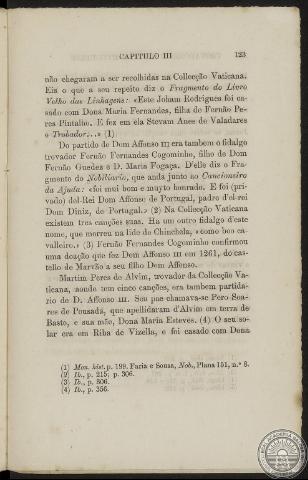 CAPITULO III 123
não chegaram a ser recolhidas na Collecção Vaticana.
Eis o que a seu repeito diz o Fragmento do Livro
Velho das Linhagens: «Este Joham Rodrigues foi ca-
sado com Dona Maria Fernandes, filha de Fernão Pe-
res Pintalho. E fez em ela Stevam Anes de Valadares
o Trobador...» (1)
Do partido de Dom Affonso III era tambem o fidalgo
trovador Fernão Fernandes Cogominho, filho de Dom
Fernão Guedes e D. Maria Fogaça. D'elle diz o Fra-
gmento do Nobiliario, que anda junto ao Cancioneiro
da Ajuda: «foi mui bom e muyto honrado. E foi (pri-
vado) del-Rei Dom Affonso de Portugal, padre d'el-rei
Dom Diniz, de Portugal.» (2) Na Collecção Vaticana
existem tres canções suas. Ha um outro fidalgo d'este
nome, que morreu na lide de Chinchela, «como boo ca-
valleiro.» (3) Fernão Fernandes Cogominho confirmou
uma doação que fez Dom Affonso III em 1261, do cas-
tello de Marvão a seu filho Dom Affonso.
Martim Peres de Alvim, trovador da Collecção Va-
ticana, aonde tem cinco canções, era tambem partida-
rio de D. Affonso III. Seu pae chamava-se Pero Soa-
res de Pousada, que apellidaram d'Alvim em terra de
Basto, e sua mãe, Dona Maria Esteves. (4) O seu so-
lar era em Riba de Vizella, e foi casado com Dona
(1) Mon. hist. p. 199. Faria e Sousa, Nob., Plana 151, n.º 8.
(2) Ib., p. 215; p. 306.
(3) Ib., p. 306.
(4) Ib., p. 356.